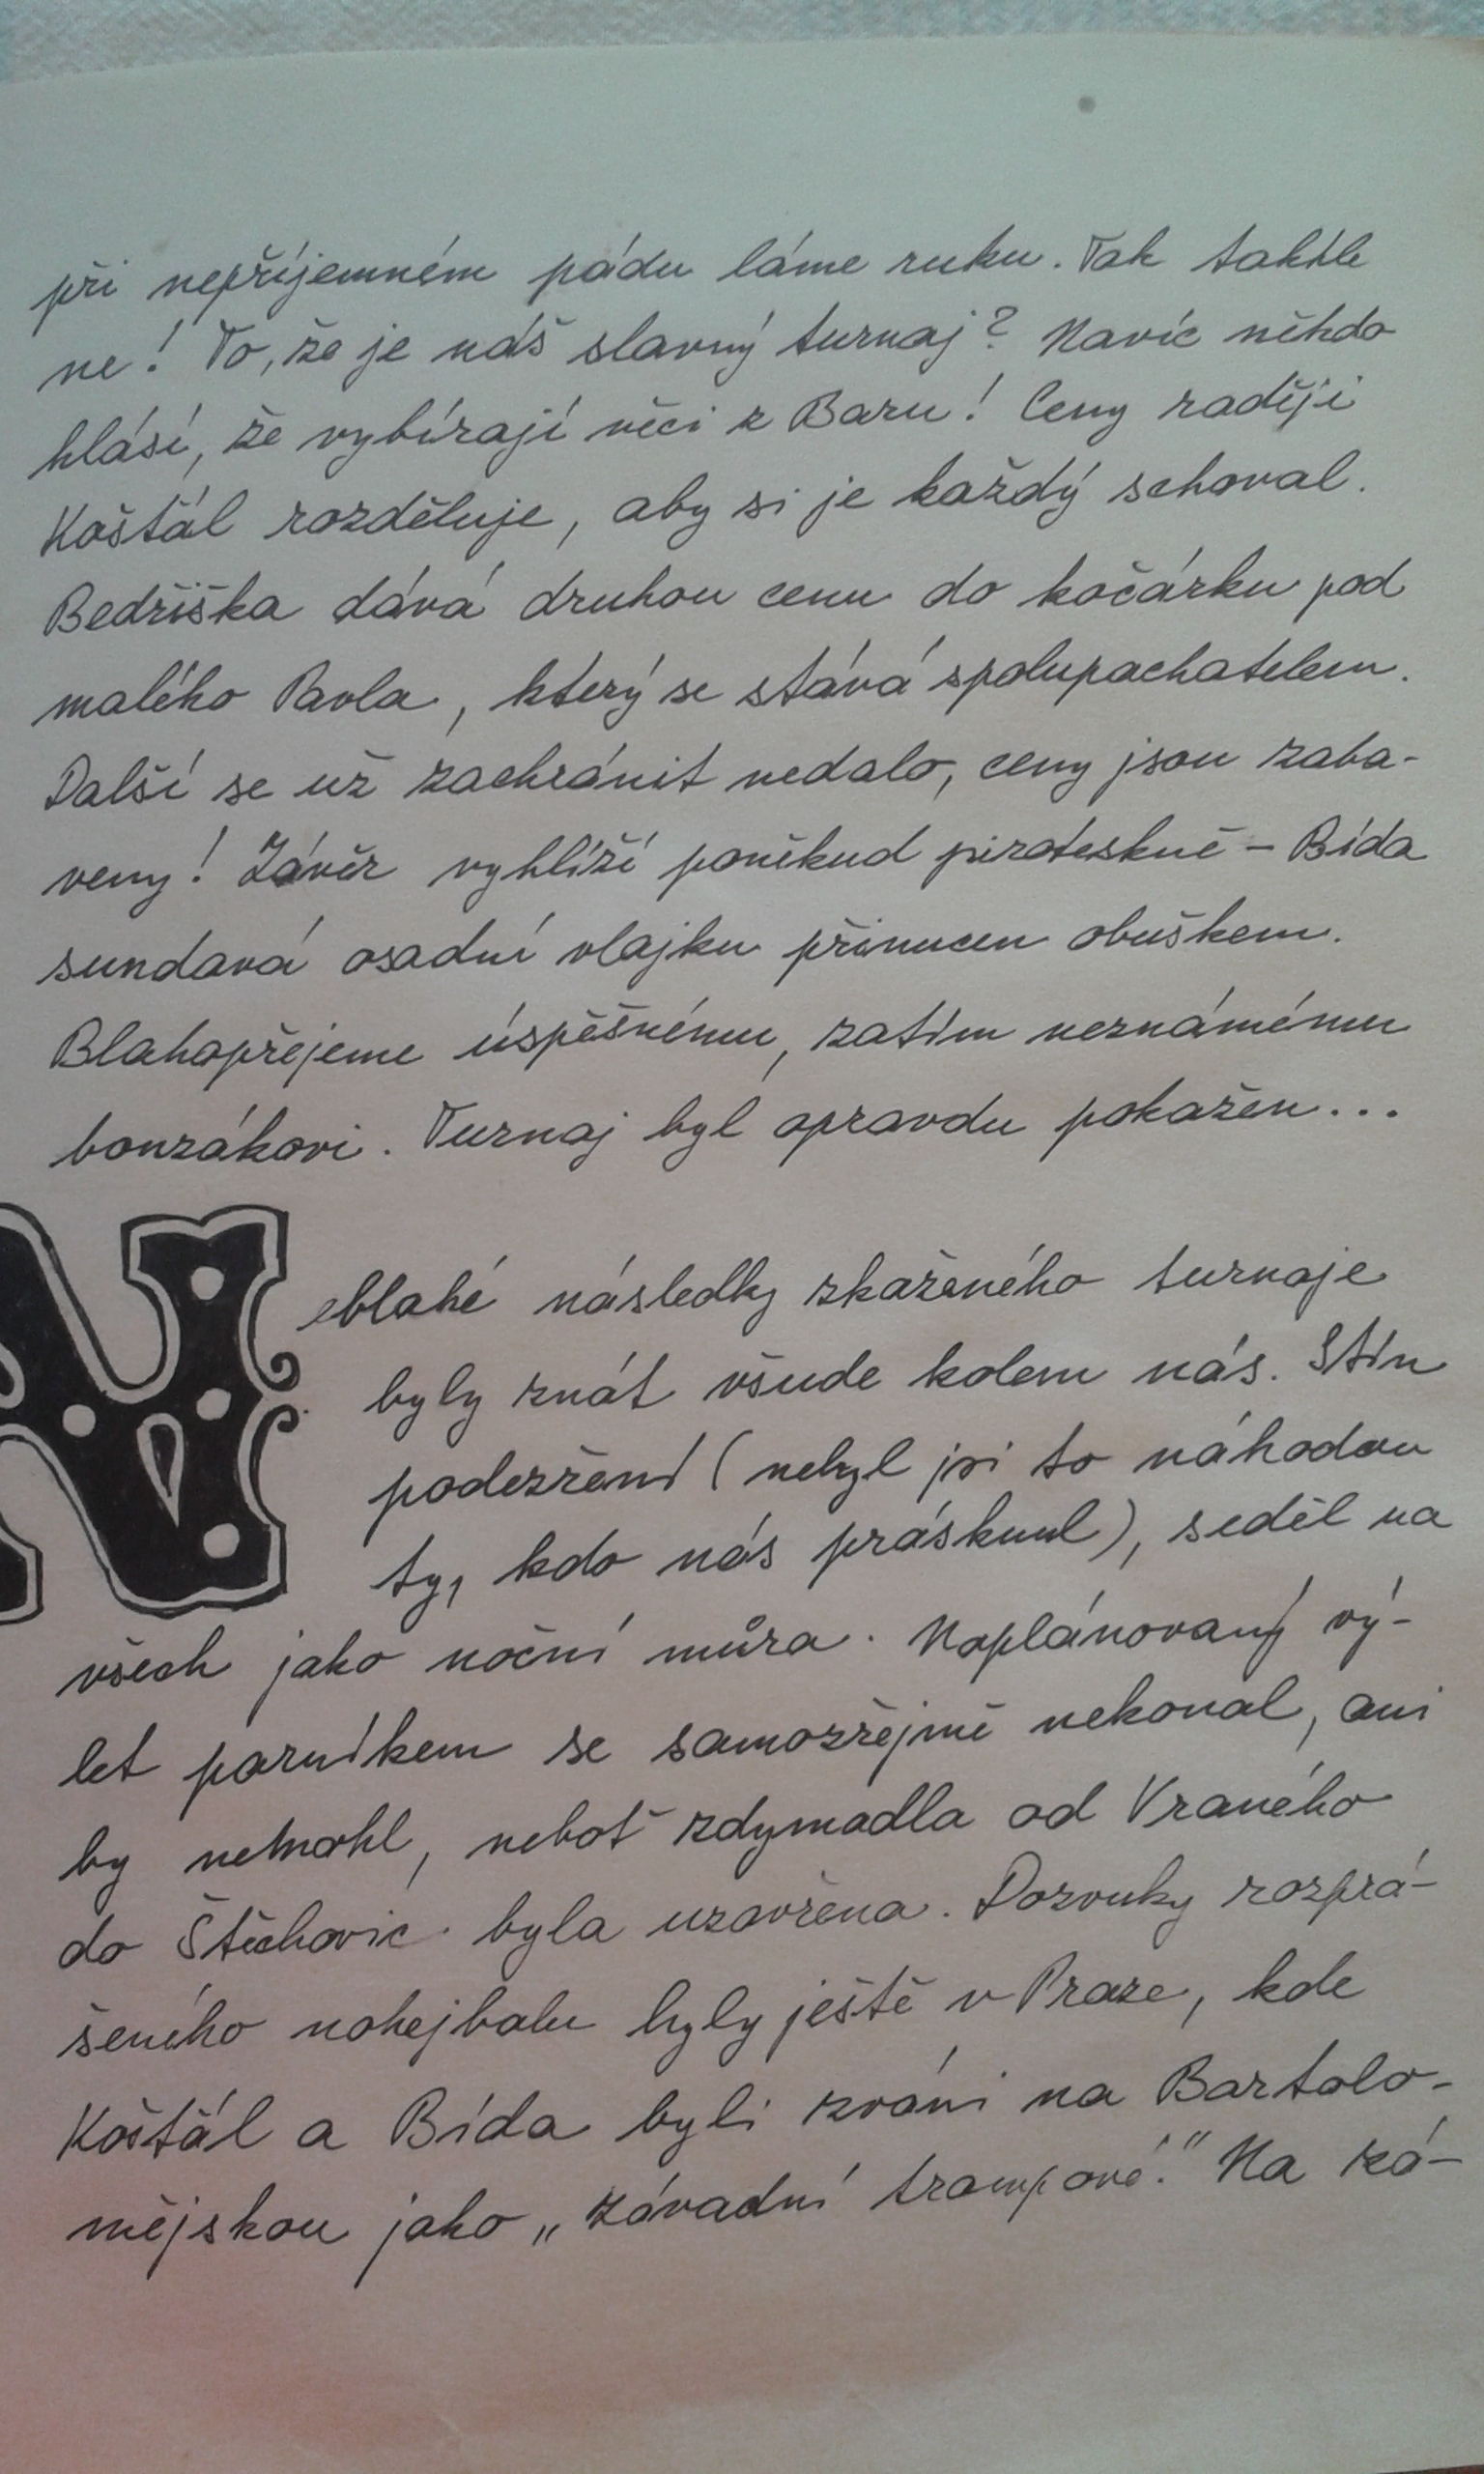 při nepříjemném pádu láme ruku. Tak takhle
ne! To, že je náš slavný turnaj? Navíc někdo
hlásí, že vybírají věci z Baru! Ceny raději
Košťál rozděluje, aby si je každý schoval.
Bedřiška dává druhou cenu do kočárku pod
malého Pavla, který se stává spolupachatelem.
Další se už zachránit nedalo, ceny jsou zaba-
veny! Závěr vyhlíží poněkud pirateskně - Bída
sundavá osadní vlajku přinucen obuškem.
Blahopřejeme úspěšnému, zatím neznámému
bonzákovi. Turnaj byl opravdu pokažen...
Neblahé následky zkaženého turnaje
byly znát všude kolem nás. Stín
podezření (nebyl jsi to náhodou
ty, kdo nás prásknul), seděl na
všech jako noční můra. Naplánovaný vý-
let parníkem se samozřejmě nekonal, ani
by nemohl, neboť zdymadla od Vraného
do Štěchovic byla uzavřena. Dozvuky rozprá-
šeného nohejbalu byly ještě v Praze, kde
Košťál a Bída byli zváni na Bartolo-
mějskou jako „závadní trampové." Na zá-